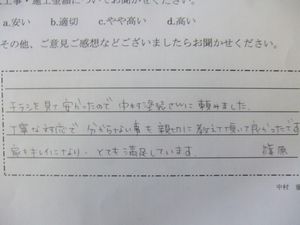 工事・施工金額についてお聞かせください。
a.安い b.適切 c.やや高い d.高い
その他、ご意見ご感想などございましたらお聞かせください。
チラシを見て安かったので中村塗装さんに頼みました。
丁寧な対応で分からない事を親切に教えて頂いて良かったです
家もキレイになり、とても満足しています。 篠原
中村